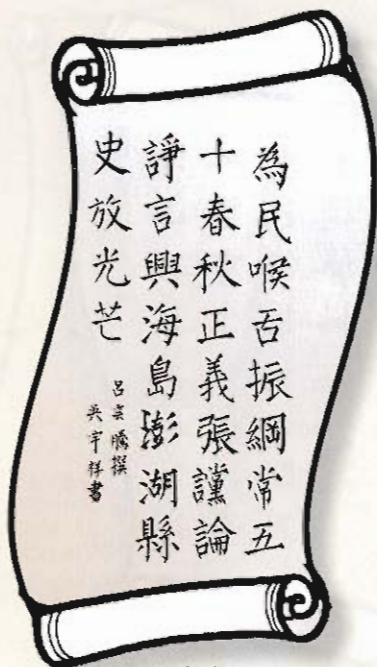 為民喉舌振綱常五
十春秋正義張讜論
諍言興海島澎湖縣
史放光芒
呂騰撰
吳宇祥書